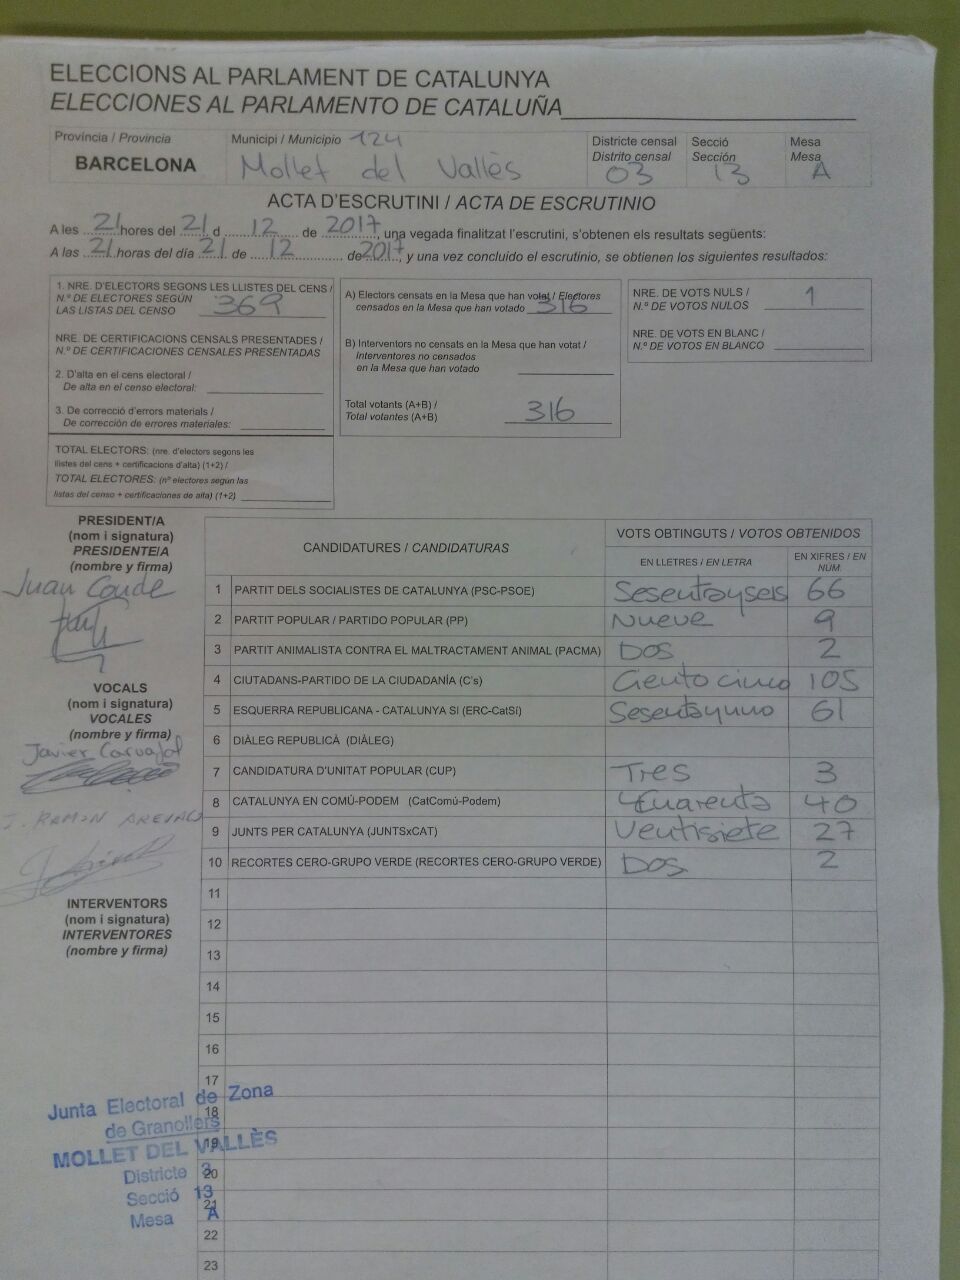 ELECCIONS AL PARLAMENT DE CATALUNYA
ELECCIONES AL PARLAMENTO DE CATALUÑA
Província / Provincia
BARCELONA
Municipi / Municipio 124
Mollet del Vallès
Districte censal
Distrito censal
03
Secció
Sección
13
Mesa
Mesa
A
ACTA D'ESCRUTINI / ACTA DE ESCRUTINIO
A les 21 hores del 21 d 12 de 2017, una vegada finalitzat l'escrutini, s'obtenen els resultats següents:
A las 21 horas del día 21 de 12 de 2017, y una vez concluido el escrutinio, se obtienen los siguientes resultados:
1. NRE. D'ELECTORS SEGONS LES LLISTES DEL CENS /
N.º DE ELECTORES SEGÚN
LAS LISTAS DEL CENSO 369
NRE. DE CERTIFICACIONS CENSALS PRESENTADES /
N.º DE CERTIFICACIONES CENSALES PRESENTADAS
2. D'alta en el cens electoral /
De alta en el censo electoral:
3. De correcció d'errors materials /
De corrección de errores materiales:
TOTAL ELECTORS: (nre. d'electors segons les
llistes del cens + certificacions d'alta) (1+2) /
TOTAL ELECTORES: (nº electores según las
listas del censo + certificaciones de alta) (1+2)
A) Electors censats en la Mesa que han votat / Electores
censados en la Mesa que han votado 316
B) Interventors no censats en la Mesa que han votat /
Interventores no censados
en la Mesa que han votado
Total votants (A+B) /
Total votantes (A+B) 316
NRE. DE VOTS NULS /
N.º DE VOTOS NULOS 1
NRE. DE VOTS EN BLANC /
N.º DE VOTOS EN BLANCO
PRESIDENT/A
(nom i signatura)
PRESIDENTE/A
(nombre y firma)
Juan Conde
VOCALS
(nom i signatura)
VOCALES
(nombre y firma)
Javier Carvajal
J. RAMON AREVALO
INTERVENTORS
(nom i signatura)
INTERVENTORES
(nombre y firma)
CANDIDATURES / CANDIDATURAS
VOTS OBTINGUTS / VOTOS OBTENIDOS
EN LLETRES / EN LETRA
EN XIFRES / EN NÚM.
1 PARTIT DELS SOCIALISTES DE CATALUNYA (PSC-PSOE) Sesentayseis 66
2 PARTIT POPULAR / PARTIDO POPULAR (PP) Nueve 9
3 PARTIT ANIMALISTA CONTRA EL MALTRACTAMENT ANIMAL (PACMA) Dos 2
4 CIUTADANS-PARTIDO DE LA CIUDADANÍA (C's) Ciento cinco 105
5 ESQUERRA REPUBLICANA - CATALUNYA SI (ERC-CatSí) Sesentayuno 61
6 DIÀLEG REPUBLICÀ (DIÀLEG)
7 CANDIDATURA D'UNITAT POPULAR (CUP) Tres 3
8 CATALUNYA EN COMÚ-PODEM (CatComú-Podem) Cuarenta 40
9 JUNTS PER CATALUNYA (JUNTSxCAT) Ventisiete 27
10 RECORTES CERO-GRUPO VERDE (RECORTES CERO-GRUPO VERDE) Dos 2
11
12
13
14
15
16
17
18
19
20
21
22
23
Junta Electoral de Zona
de Granollers
MOLLET DEL VALLÈS
Districte 3
Secció 13
Mesa A